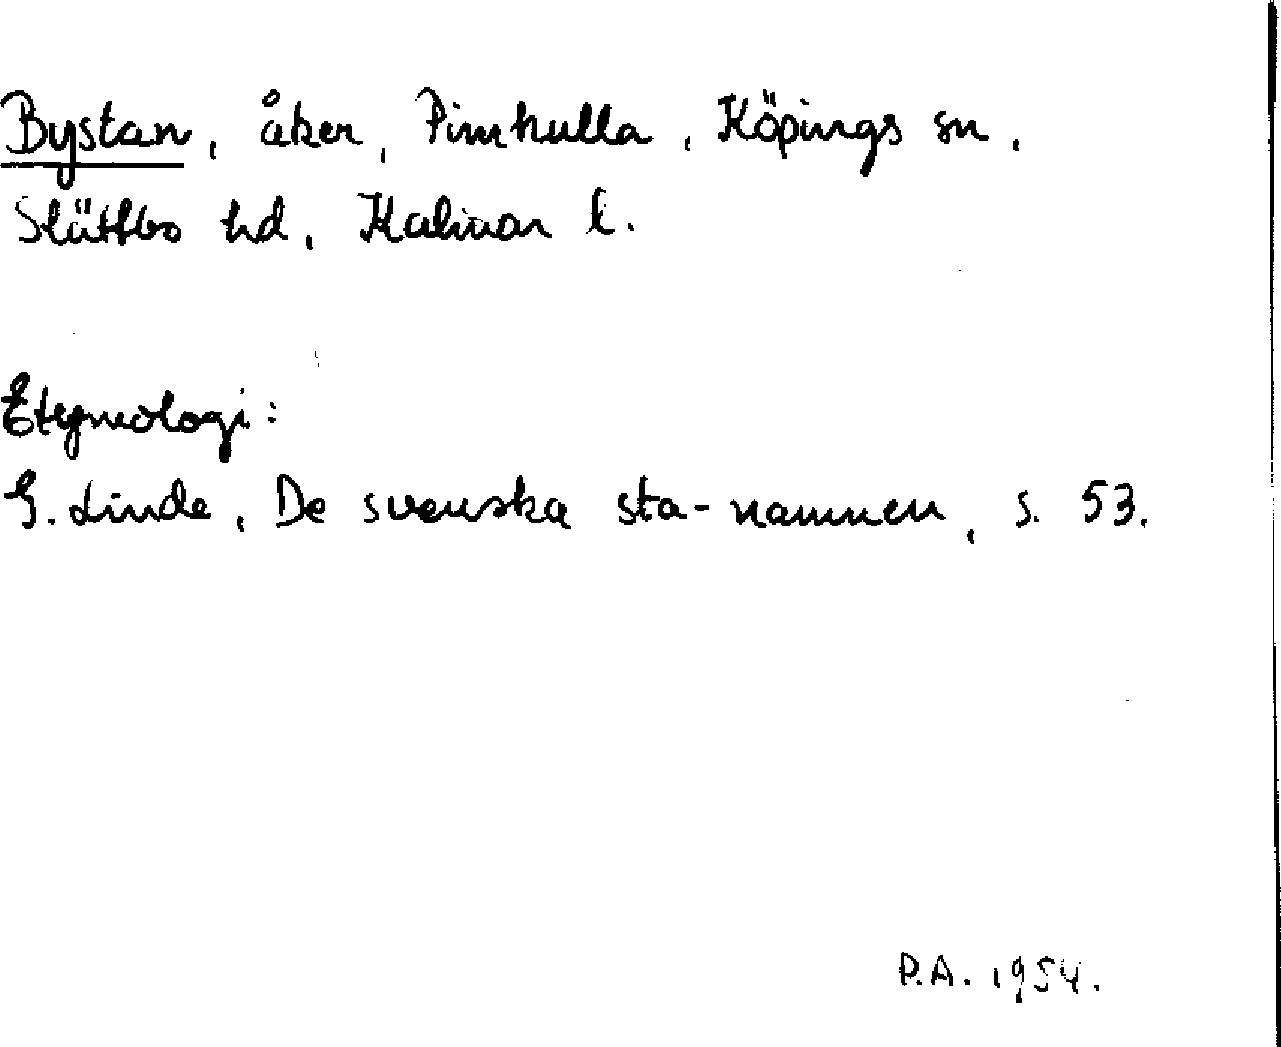 Bystan, åker, Pinkulla, Köpings sn,
Slättbo hd, Kalmar l.
Etymologi:
G. Linde, De svenska sta-namnen, s. 53.
P.A. 1954.